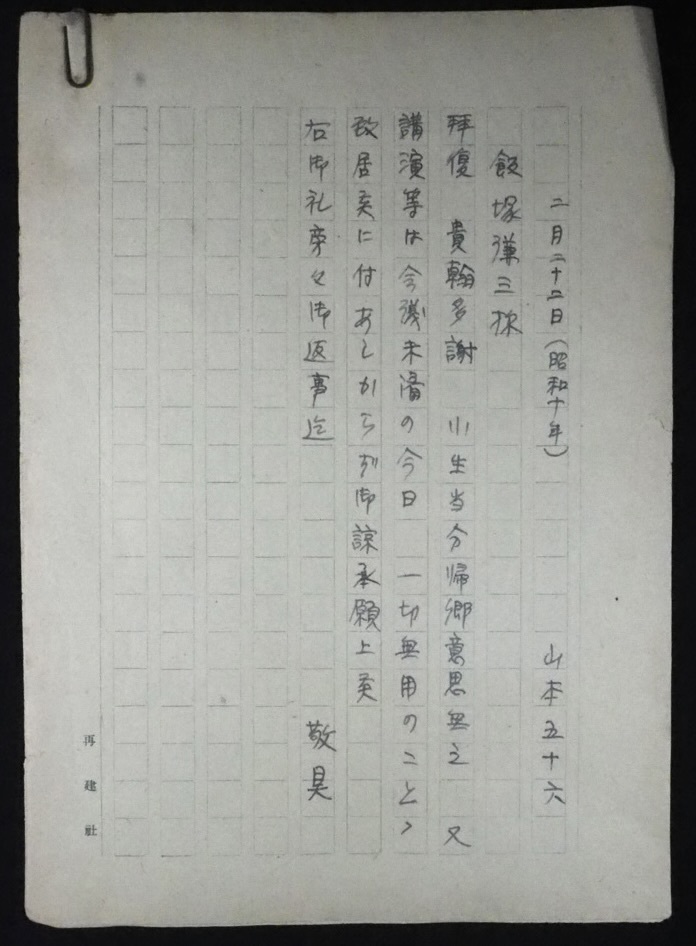 二月二十二日（昭和十年）　山本五十六
飯塚謙三様
拝復　貴翰多謝　小生当分帰郷意思無之　又
講演等は会議未済の今日　一切無用のことゝ
致居候に付あしからず御諒承願上候
右御礼旁々御返事迄　敬具
再建社